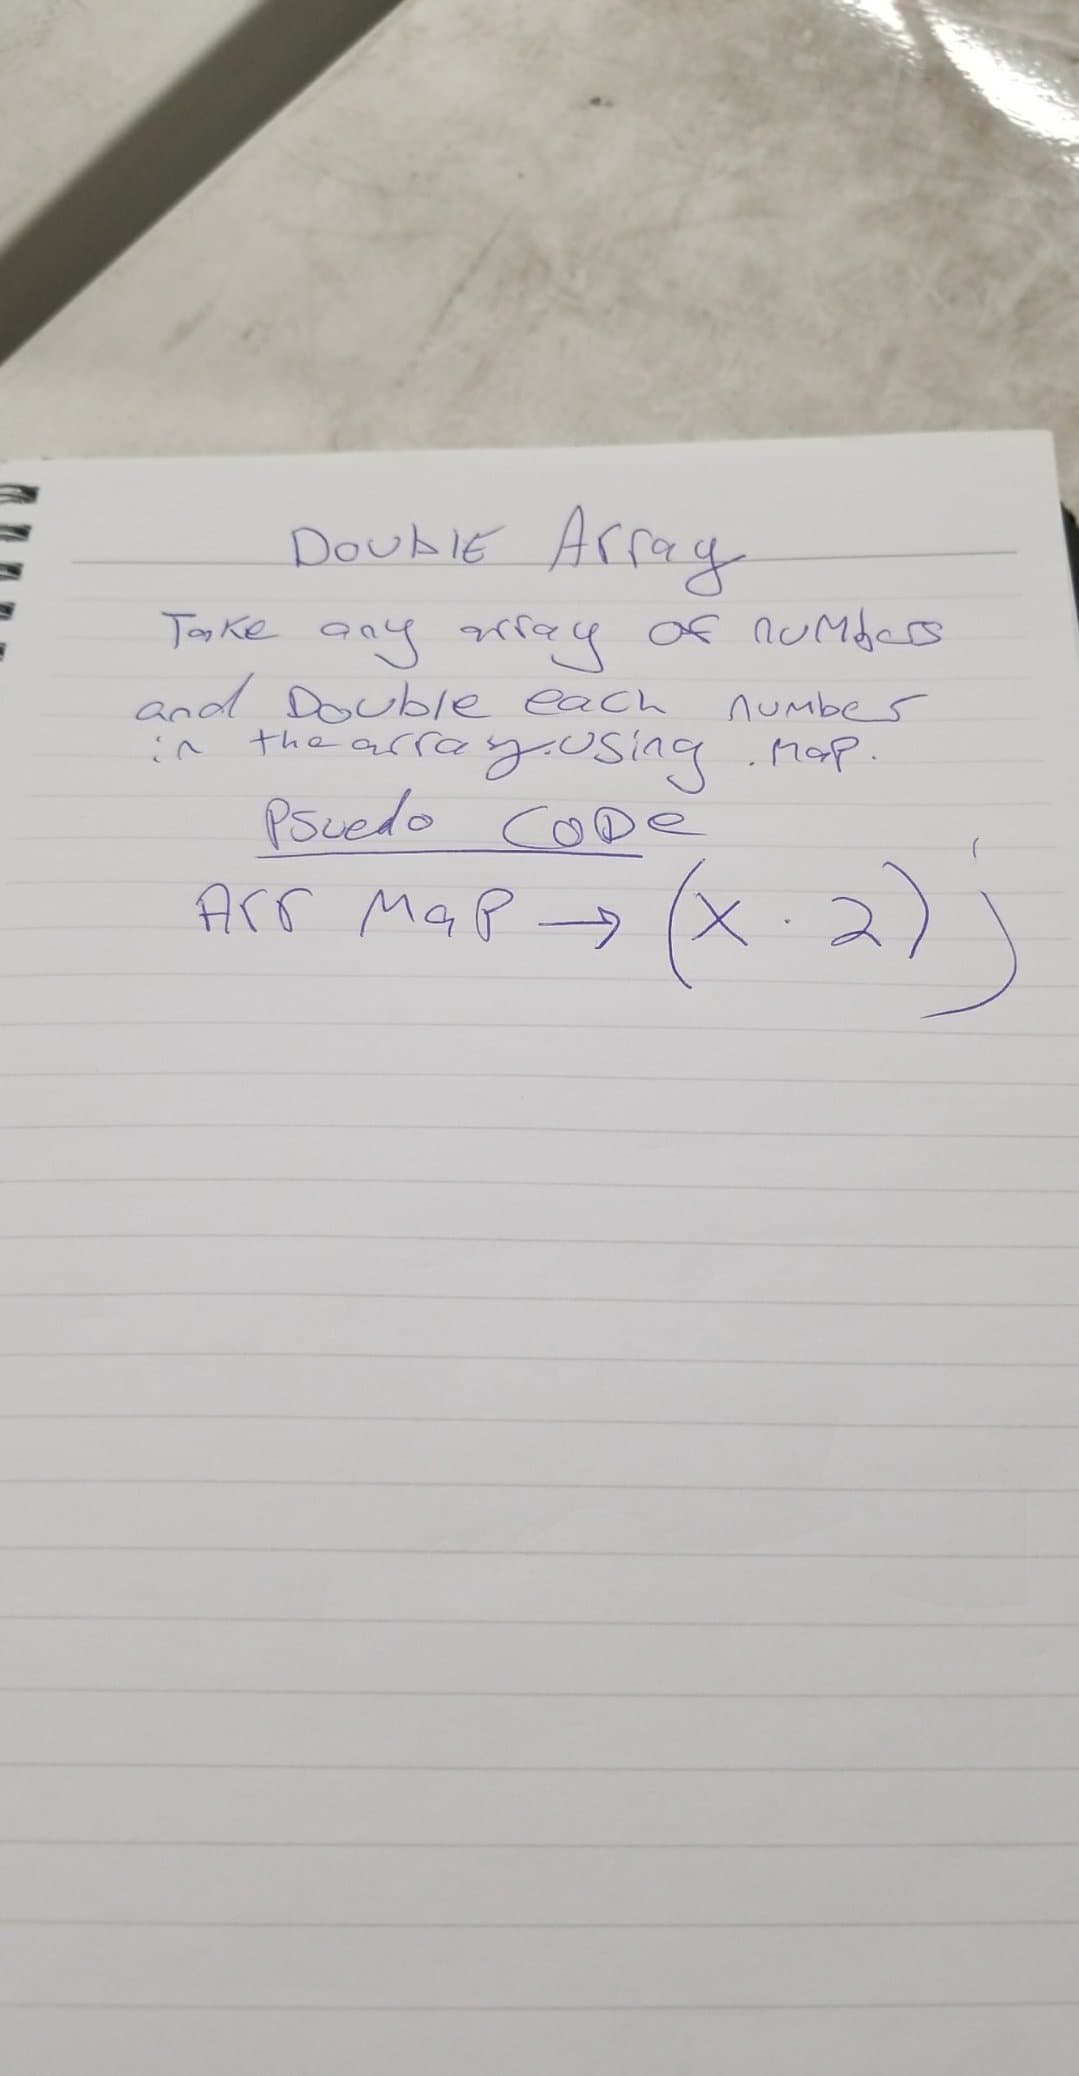 Double Array
Take any array of numbers
and Double each number
in the array. using .map.
Psuedo Code
Arr Map → (x · 2) ;